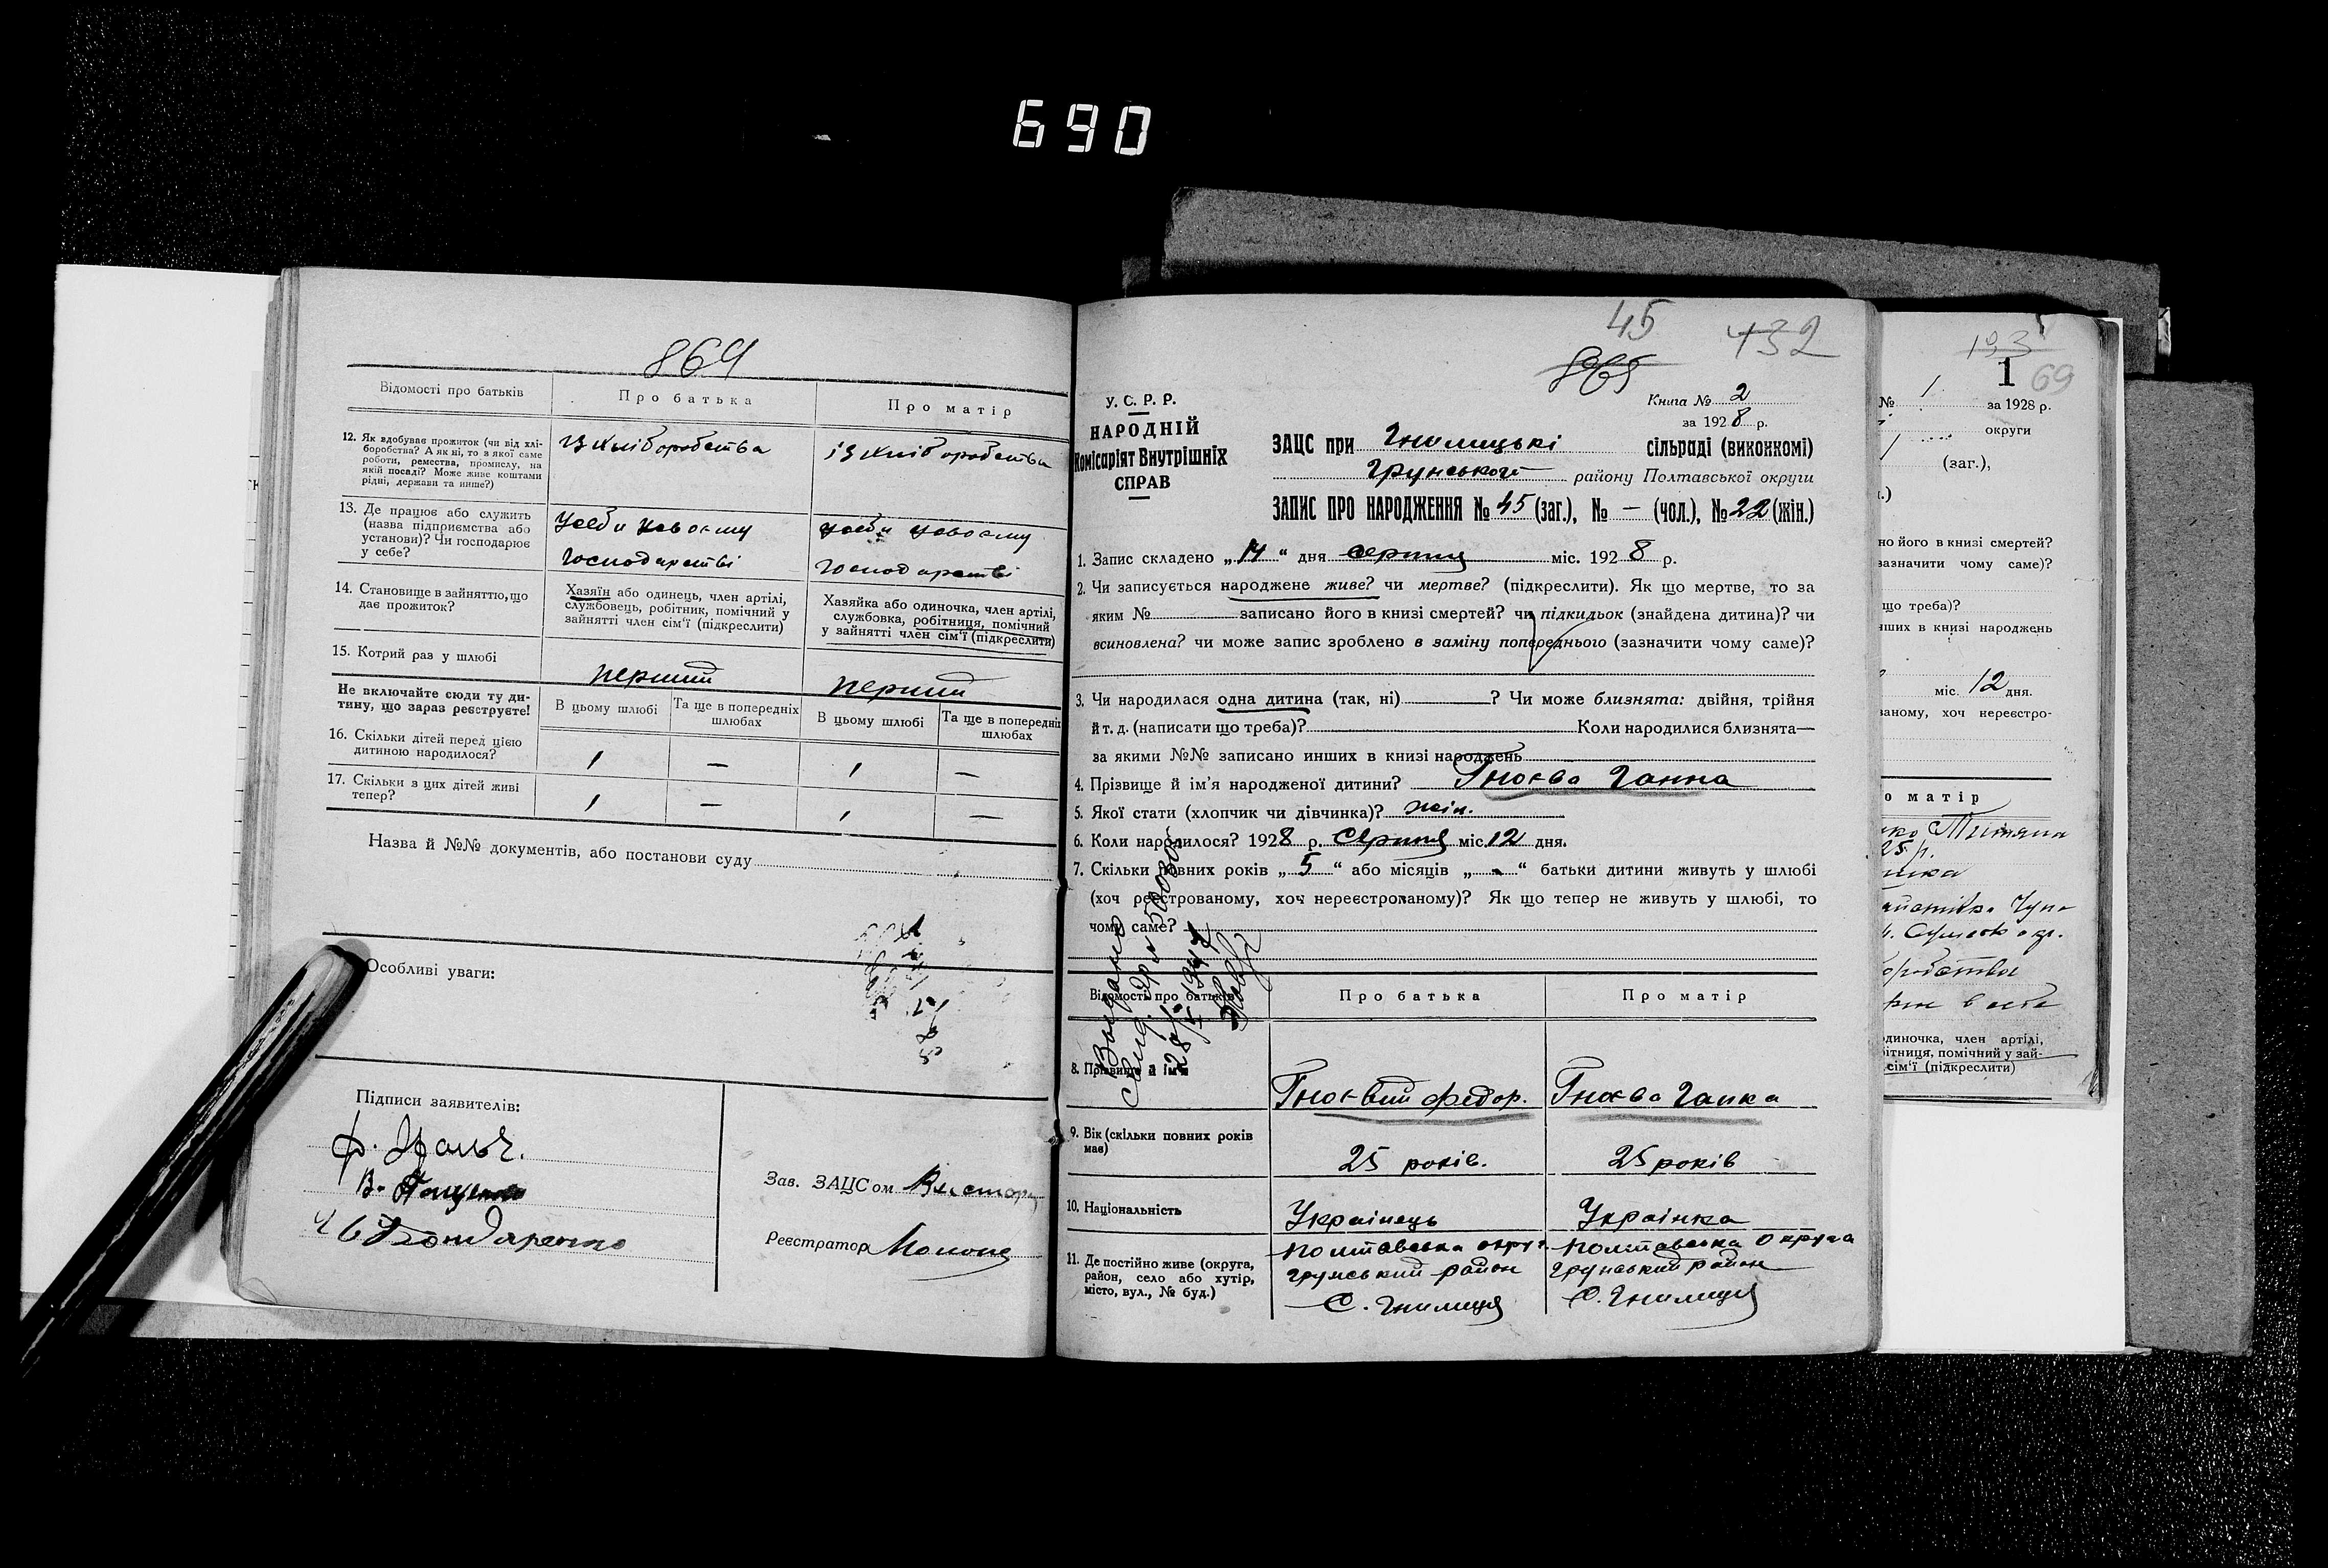 690
864
Відомості про батьків
Про батька
Про матір
12. Як здобуває прожиток (чи від хлі-
боробства? А як ні, то з якої саме
роботи, ремества, промислу, на
якій посаді? Може живе коштами
рідні, держави та инше?)
Із хліборобства
із хліборобства
13. Де працює або служить
(назва підприємства або
установи)? Чи господарює
у себе?
господарстві
господарстві
14. Становище в зайняттю, що
дає прожиток?
Хазяїн або одинець, член артілі,
службовець, робітник, помічний у
зайнятті член сім'ї (підкреслити)
Хазяйка або одиночка, член артілі,
службовка, робітниця, помічний
у зайнятті член сім'ї (підкреслити)
15. Котрий раз у шлюбі
перший
перший
Не включайте сюди ту ди-
тину, що зараз реєструєте!
В цьому шлюбі
Та ще в попередніх
шлюбах
В цьому шлюбі
Та ще в попередніх
шлюбах
16. Скільки дітей перед цією
дитиною народилося?
1 — 1 —
17. Скільки з цих дітей живі
тепер?
1 — 1 —
Назва й №№ документів, або постанови суду
Особливі уваги:
Підписи заявителів:
Бондаренко
Зав. ЗАЦСом
Реєстратор
45
432
865
У. С. Р. Р.
НАРОДНІЙ
Комісаріят Внутрішніх
СПРАВ
Книга № 2
за 1928 р.
ЗАЦС при Гнилицькі сільраді (виконкомі)
Грунського району Полтавської округи
ЗАПИС ПРО НАРОДЖЕННЯ № 45 (заг.), № — (чол.), № 22 (жін.)
1. Запис складено „14“ дня серпня міс. 1928 р.
2. Чи записується народжене живе? чи мертве? (підкреслити). Як що мертве, то за
яким № записано його в книзі смертей? чи підкидьок (знайдена дитина)? чи
всиновлена? чи може запис зроблено в заміну попереднього (зазначити чому саме)?
3. Чи народилася одна дитина (так, ні) ? Чи може близнята: двійня, трійня
й т. д. (написати що треба)? Коли народилися близнята—
за якими №№ записано инших в книзі народжень
4. Прізвище й ім'я народженої дитини? Гноєва Ганна
5. Якої стати (хлопчик чи дівчинка)? жін.
6. Коли народилося? 1928 р. Серпня міс 12 дня.
7. Скільки повних років „5“ або місяців „-“ батьки дитини живуть у шлюбі
(хоч реєстрованому, хоч нереєстрованому)? Як що тепер не живуть у шлюбі, то
чому саме?
Відомості про батьків
Про батька
Про матір
8. Прізвище й ім'я
Гноєвий Федор.
Гноєва Гапка
9. Вік (скільки повних років
має)
25 років.
25 років
10. Національність
Українець
Українка
11. Де постійно живе (округа,
район, село або хутір,
місто, вул., № буд.)
Полтавська округ.
Грунський район
С. Гнилиця
Полтавська округа
Грунський район
С. Гнилиця
193
1
69
№ 1 за 1928 р.
округи
(заг.),
но його в книзі смертей?
зазначити чому саме)?
що треба)?
нших в книзі народжень
міс. 12 дня.
ваному, хоч нереєстро-
о матір
25 р.
одиночка, член артілі,
бітниця, помічний у зай-
сім'ї (підкреслити)